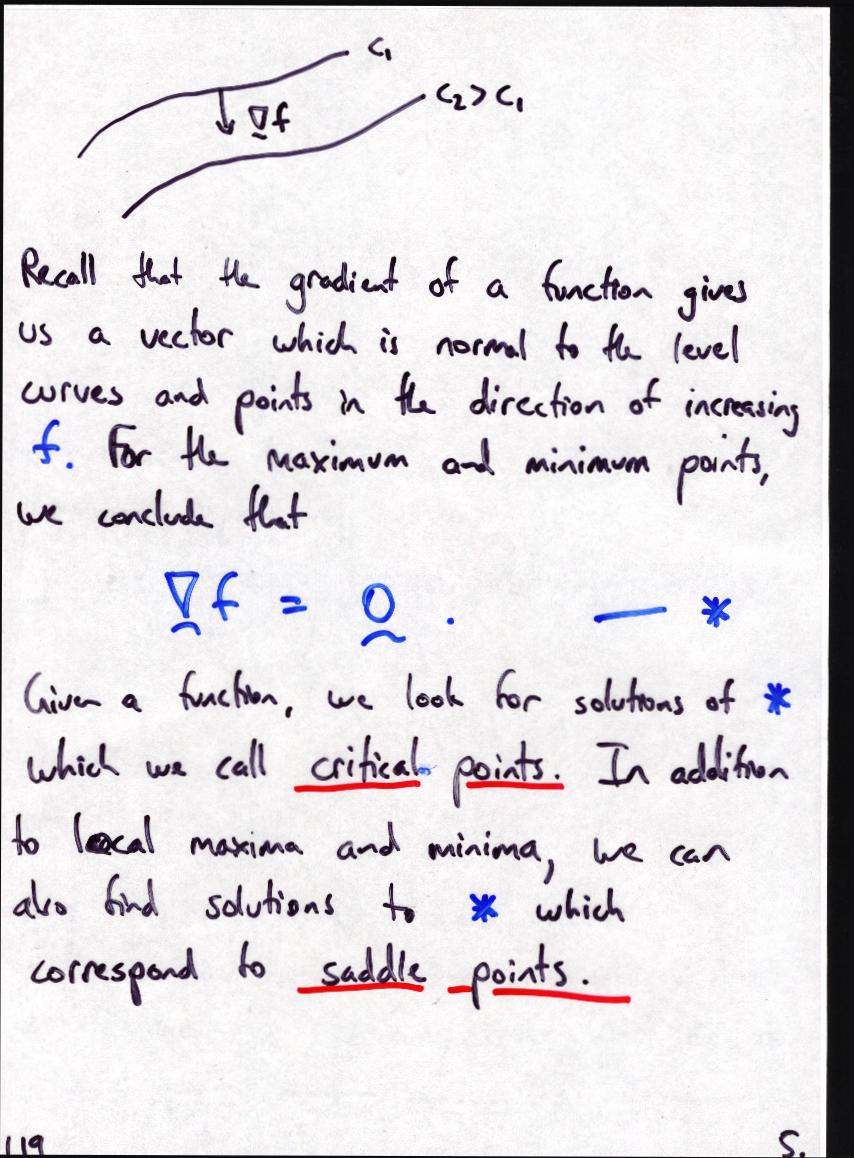 C₁
∇f
C₂ > C₁
Recall that the gradient of a function gives
us a vector which is normal to the level
curves and points in the direction of increasing
f. For the maximum and minimum points,
we conclude that
∇f = 0 . — *
Given a function, we look for solutions of *
which we call critical points. In addition
to local maxima and minima, we can
also find solutions to * which
correspond to saddle points.
119
5.